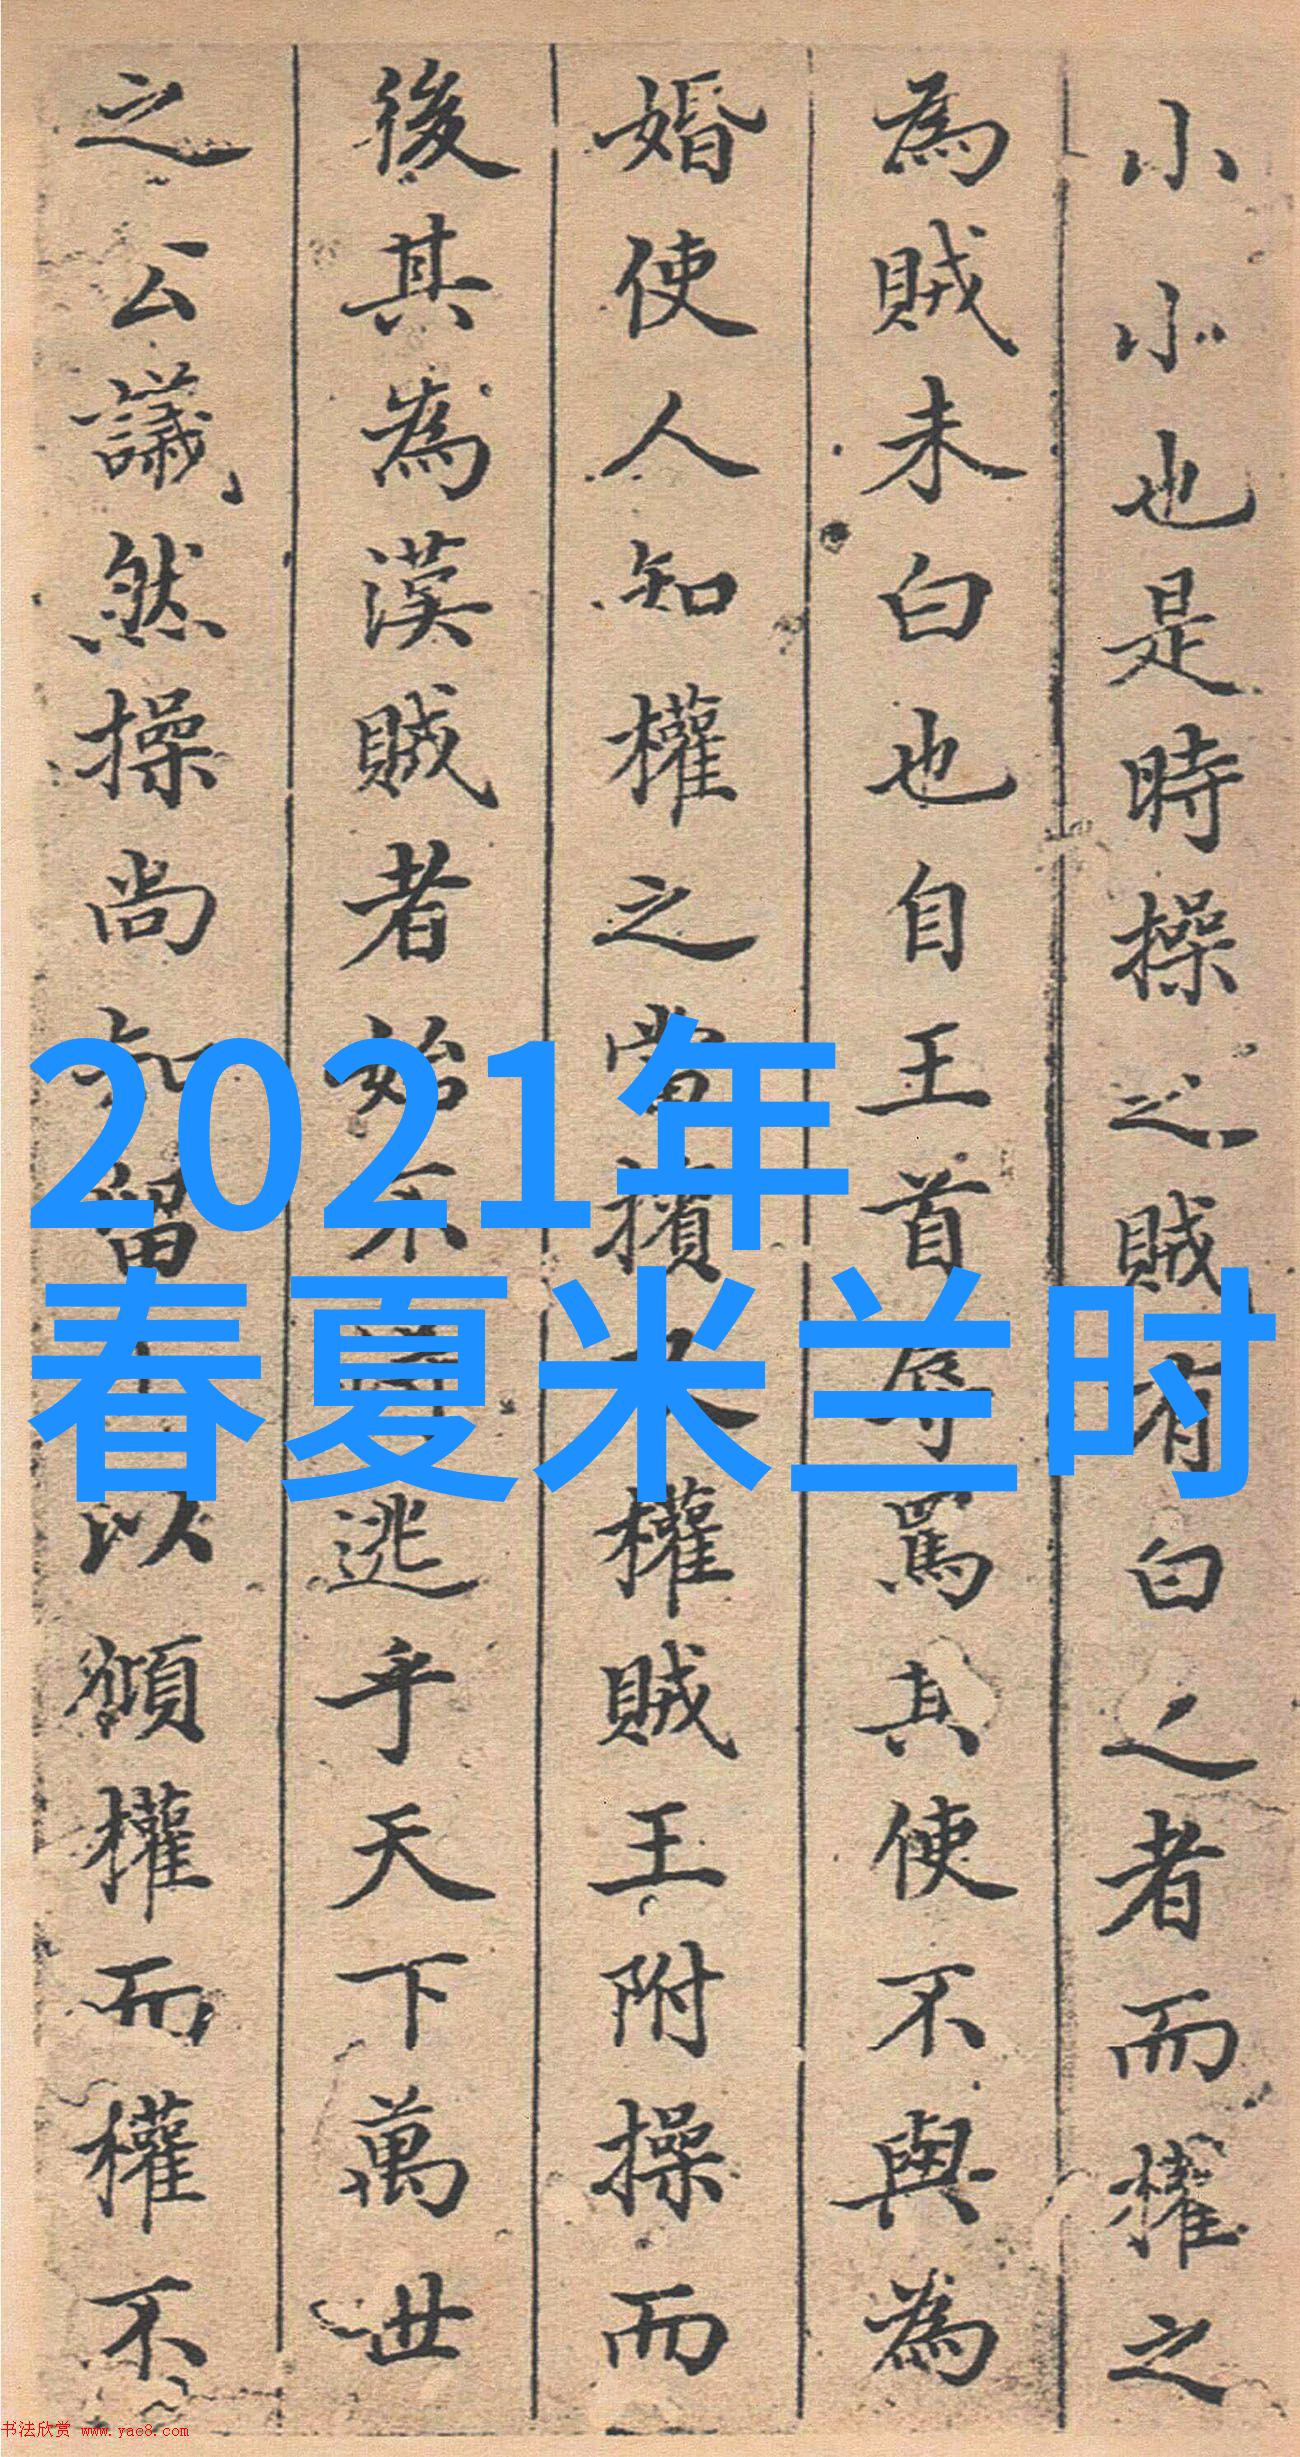 小小也是時操之賊有白之者而權之
為賊未白也自王首辱罵其使不與為
婚使人知權之當擯權賊王附操而
後其為漢賊者始不得逃乎天下萬世
之公議然操尚知留以權而權不
2021年
春夏米兰时
书法欣赏 www.yac8.com